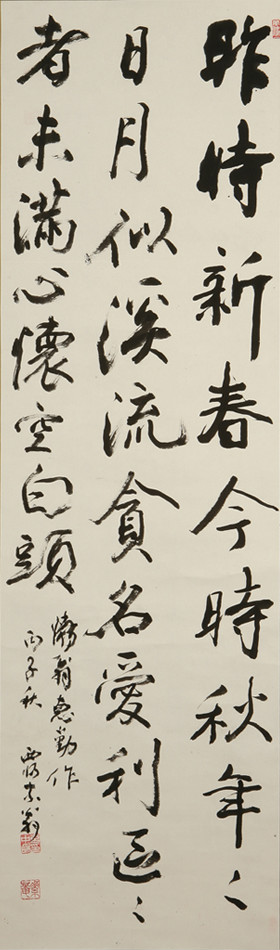 昨時新春今時秋年々
日月似溪流貪名愛利區々
者未滿心懷空白頭
懶翁惠勤作
丙子秋